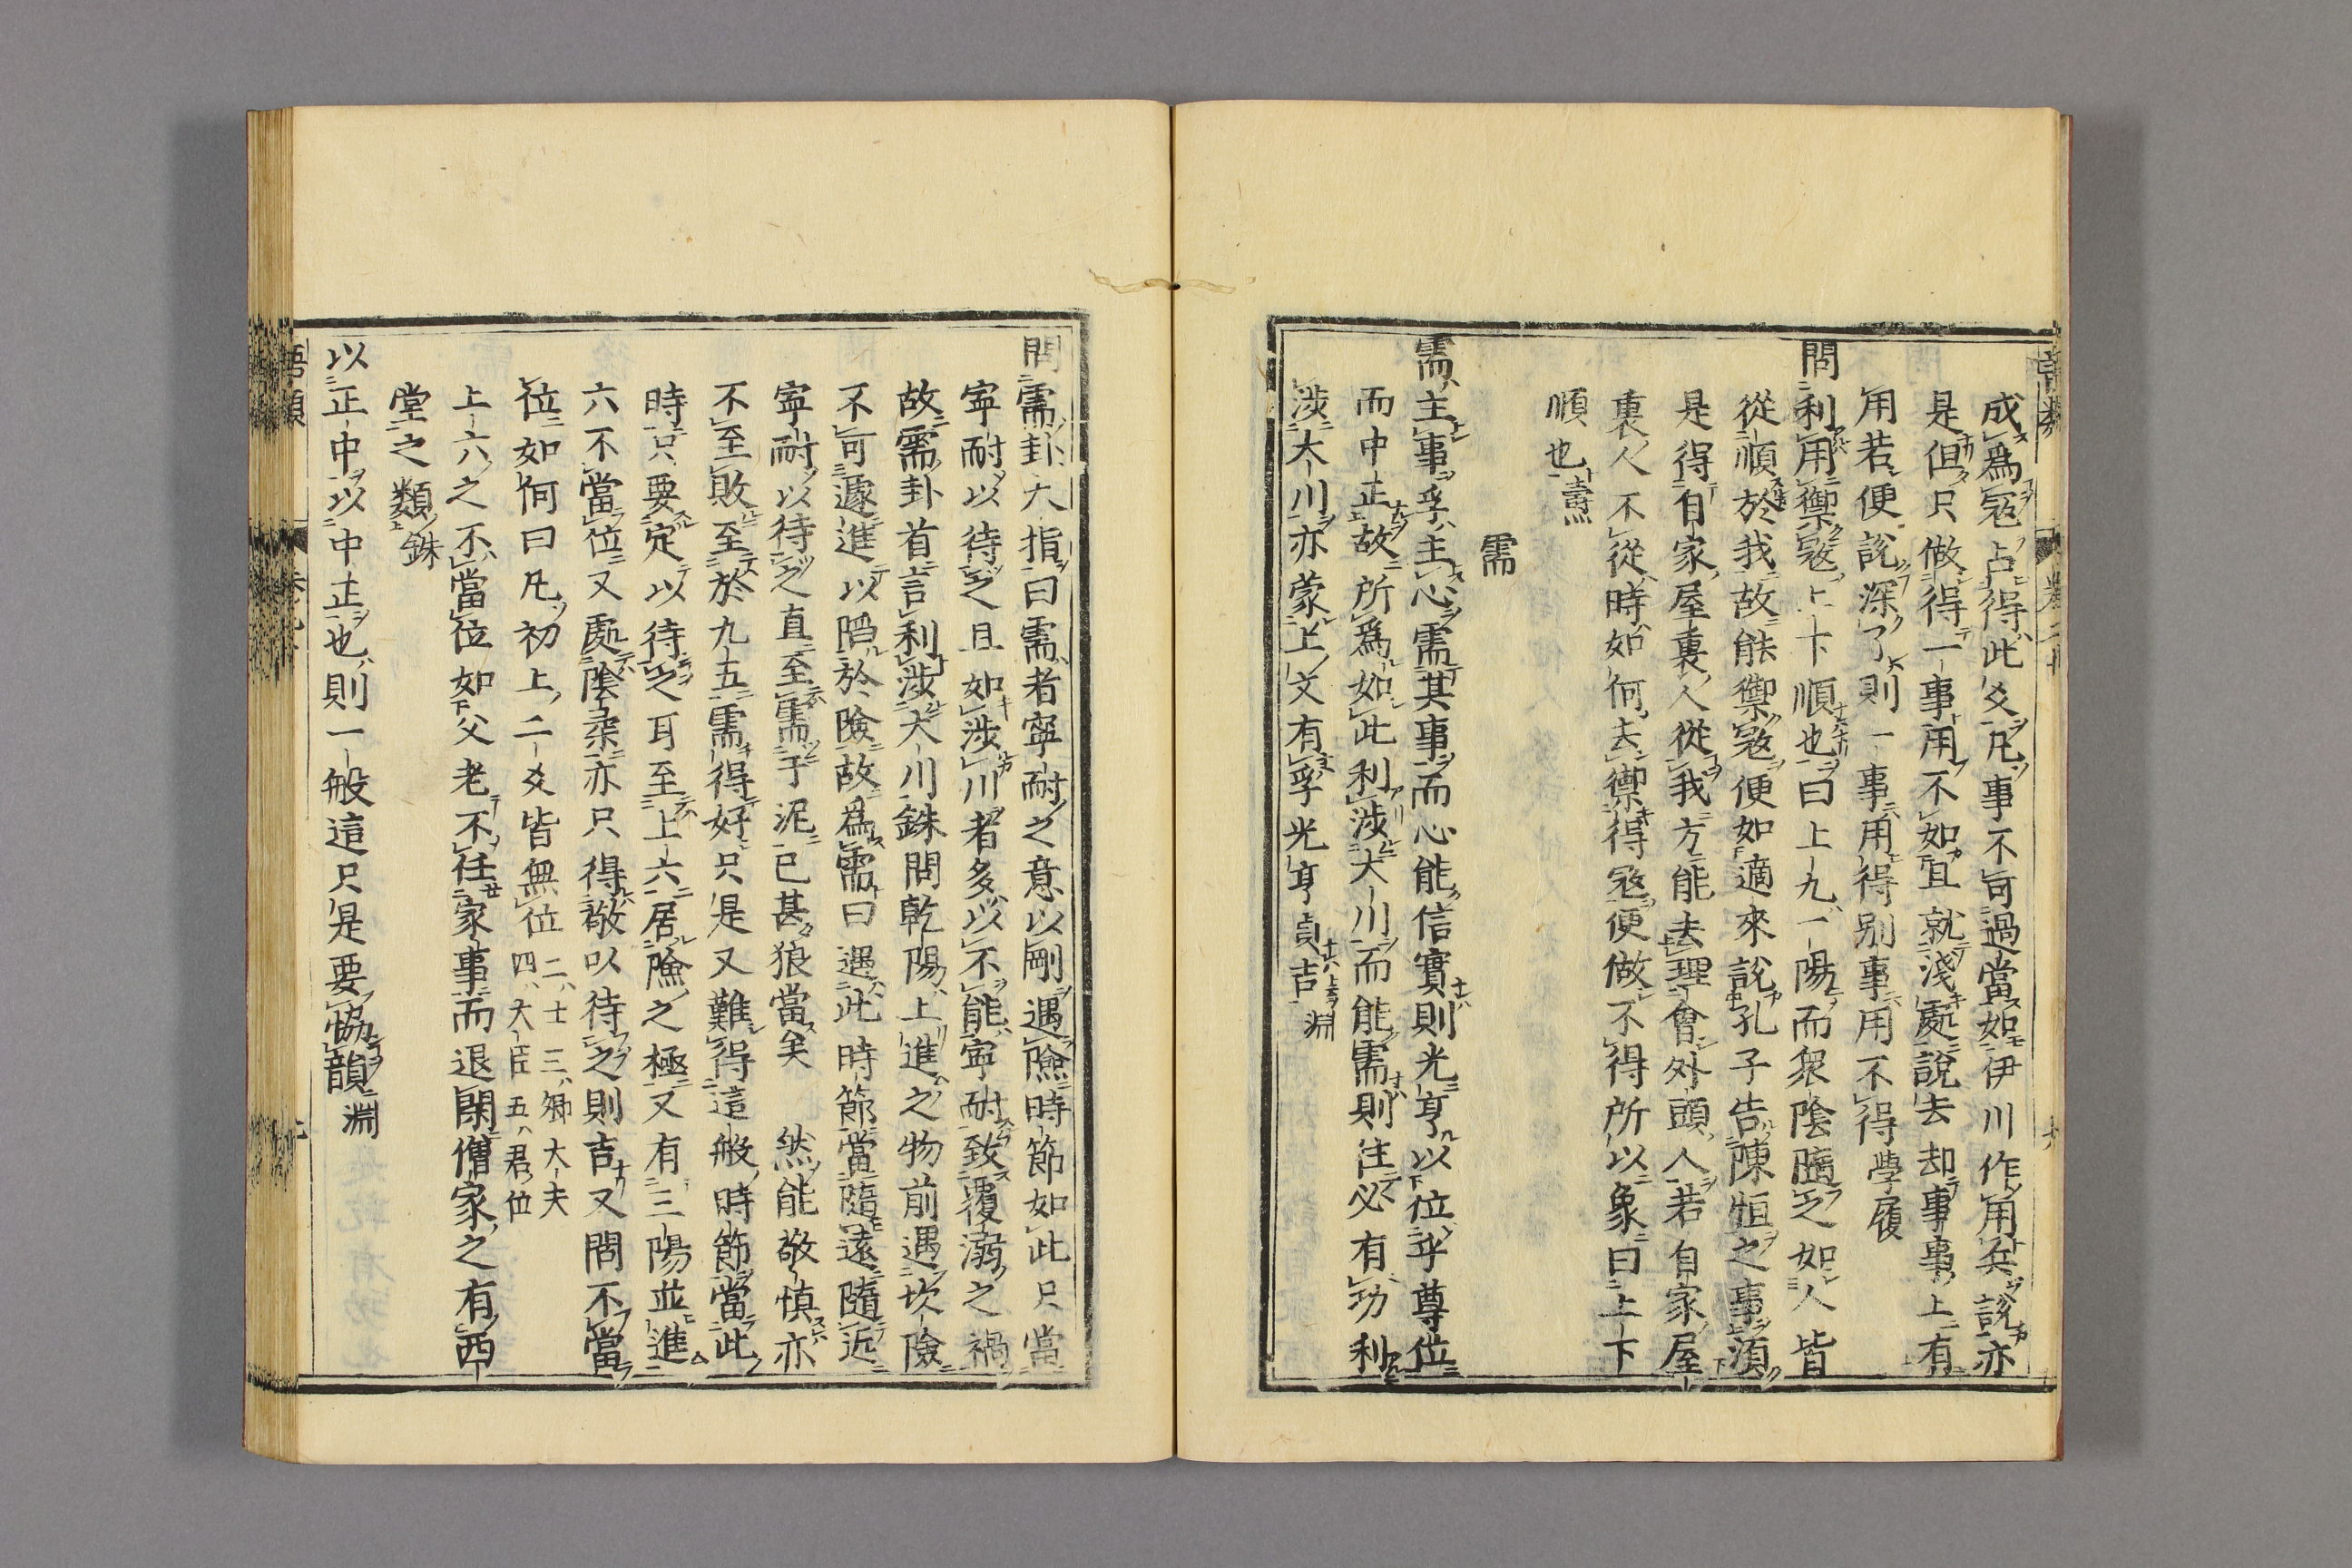 成爲寇占得此爻凡事不可過當如伊川作用兵說亦
是但只做得一事用不如且就淺處說去却事事上有
用若便說深了則一事用得別事用不得學履
問利用禦寇上下順也曰上九一陽而衆陰隨之如人皆
從順於我故能禦寇便如適來說孔子告陳恒之事須
是得自家屋裏人從我方能去理會外頭人若自家屋
裏人不從時如何去禦得寇便做不得所以象曰上下
順也燾
需
需主事孚主心需其事而心能信實則光亨以位乎尊位
而中正故所爲如此利涉大川而能需則往必有功利
涉大川亦蒙上文有孚光亨貞吉淵
問需卦大指曰需者寧耐之意以剛遇險時節如此只當
寧耐以待之且如涉川者多以不能寧耐致覆溺之禍
故需卦首言利涉大川銖問乾陽上進之物前遇坎險
不可遽進以陷於險故爲需曰遇此時節當隨遠隨近
寧耐以待之直至需于泥已甚狼當矣然能敬慎亦
不至敗至於九五需得好只是又難得這般時節當此
時只要定以待之耳至上六居險之極又有三陽並進
六不當位又處陰柔亦只得敬以待之則吉又問不當
位如何曰凡初上二爻皆無位二士三卿大夫四大臣五君位
上六之不當位如父老不任家事而退閑僧家之有西
堂之類銖
以正中以中正也則一般這只是要協韻淵
語類